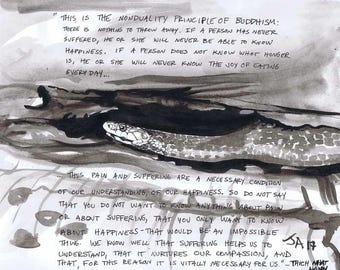 "THIS IS THE NONDUALITY PRINCIPLE OF BUDDHISM:
THERE IS NOTHING TO THROW AWAY. IF A PERSON HAS NEVER
SUFFERED, HE OR SHE WILL NEVER BE ABLE TO KNOW
HAPPINESS. IF A PERSON DOES NOT KNOW WHAT HUNGER
IS, HE OR SHE WILL NEVER KNOW THE JOY OF EATING
EVERY DAY...
... THIS PAIN AND SUFFERING ARE A NECESSARY CONDITION
OF OUR UNDERSTANDING, OF OUR HAPPINESS. SO DO NOT SAY
THAT YOU DO NOT WANT TO KNOW ANYTHING ABOUT PAIN
OR ABOUT SUFFERING, THAT YOU ONLY WANT TO KNOW
ABOUT HAPPINESS - THAT WOULD BE AN IMPOSSIBLE
THING. WE KNOW WELL THAT SUFFERING HELPS US TO
UNDERSTAND, THAT IT NURTURES OUR COMPASSION, AND
THAT, FOR THIS REASON IT IS VITALLY NECESSARY FOR US." - THICH NHAT
HANH
JA 17